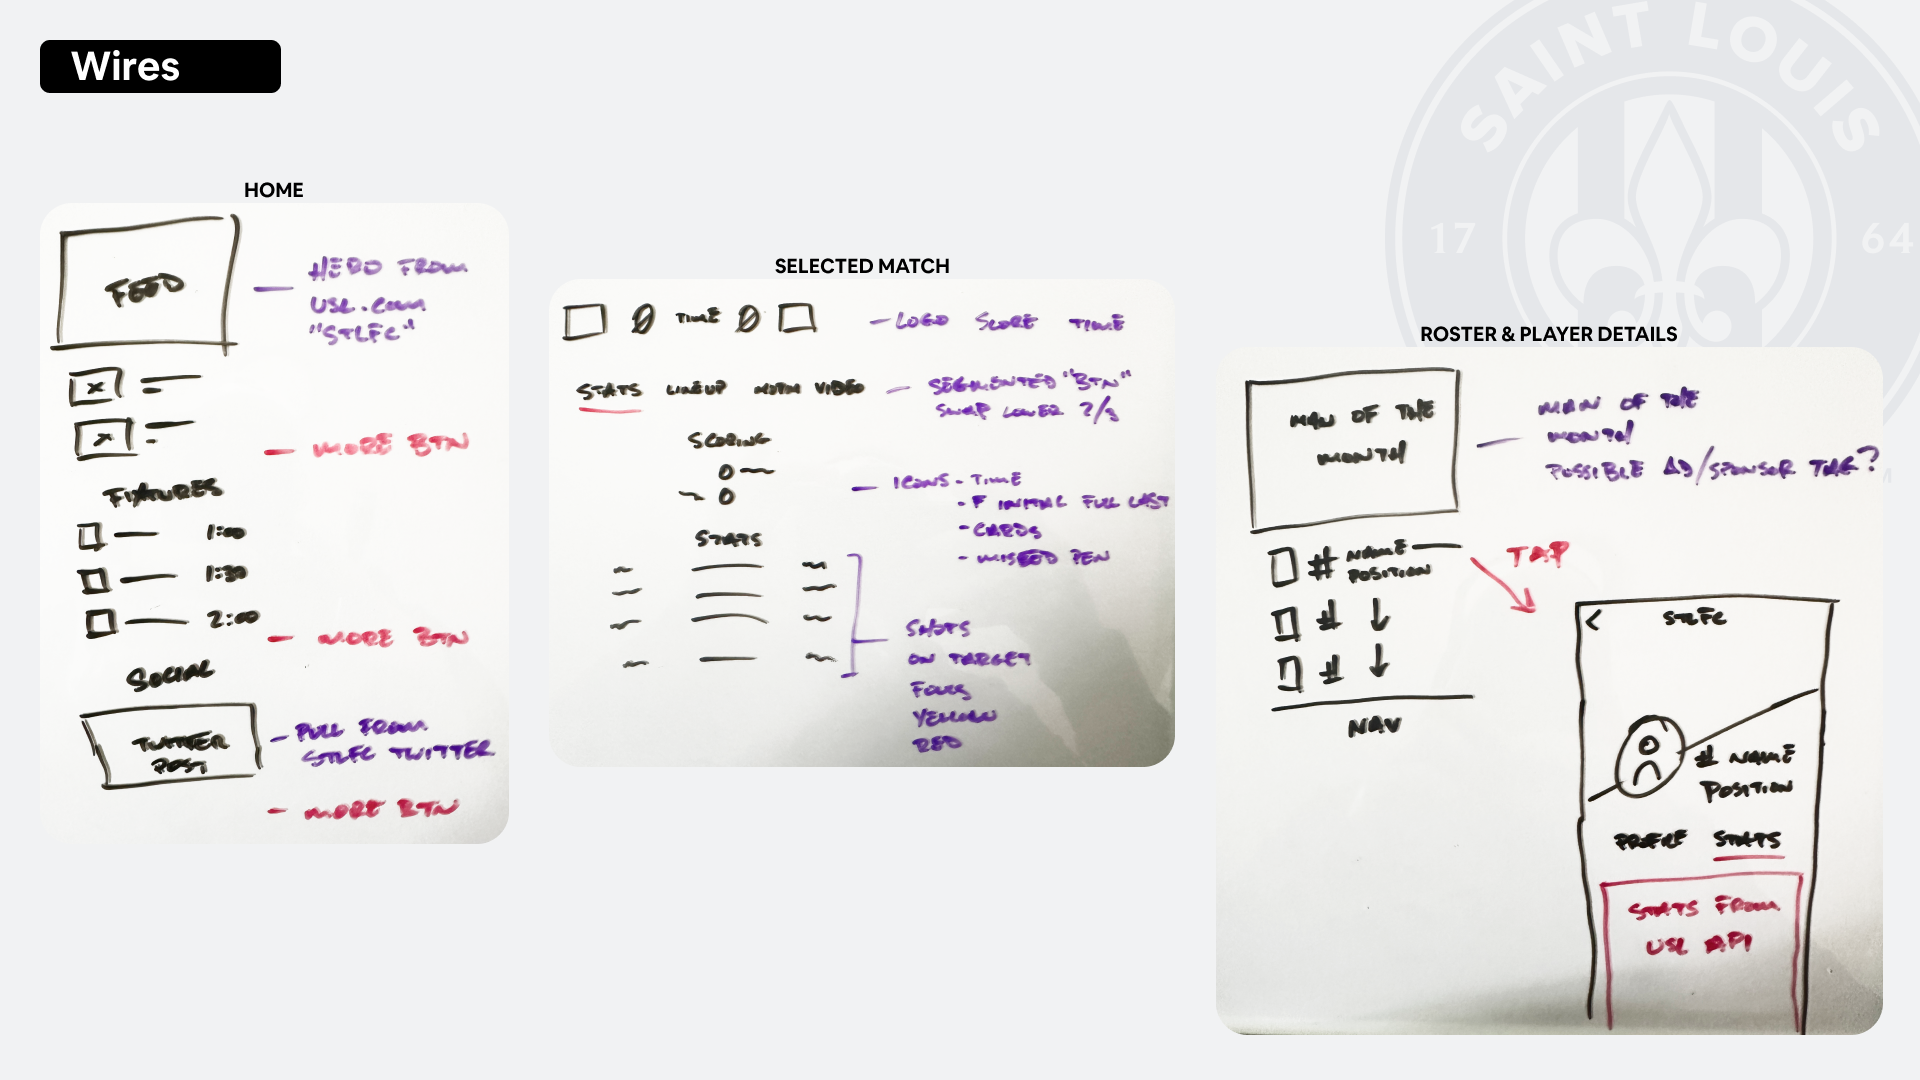 Wires
SAINT LOUIS
17
64
HOME
FEED
HERO FROM
USL.COM
"STLFC"
MORE BTN
FIXTURES
1:00
1:30
2:00
MORE BTN
SOCIAL
TWITTER
POST
PULL FROM
STLFC TWITTER
MORE BTN
SELECTED MATCH
0 TIME 0
LOGO SCORE TIME
STATS LINEUP MTCH VIDEO
SEGMENTED "BTN"
SWAP LOWER 2/3
SCORING
ICONS - TIME
- F INITIAL FULL LAST
- CARDS
- MISSED PEN
STATS
SHOTS
ON TARGET
FOULS
YELLOW
RED
ROSTER & PLAYER DETAILS
MAN OF THE
MONTH
MAN OF THE
MONTH
POSSIBLE AD/SPONSOR TAG?
# NAME
POSITION
#
#
NAV
TAP
< STLFC
# NAME
POSITION
STATS
STATS FROM
USL API